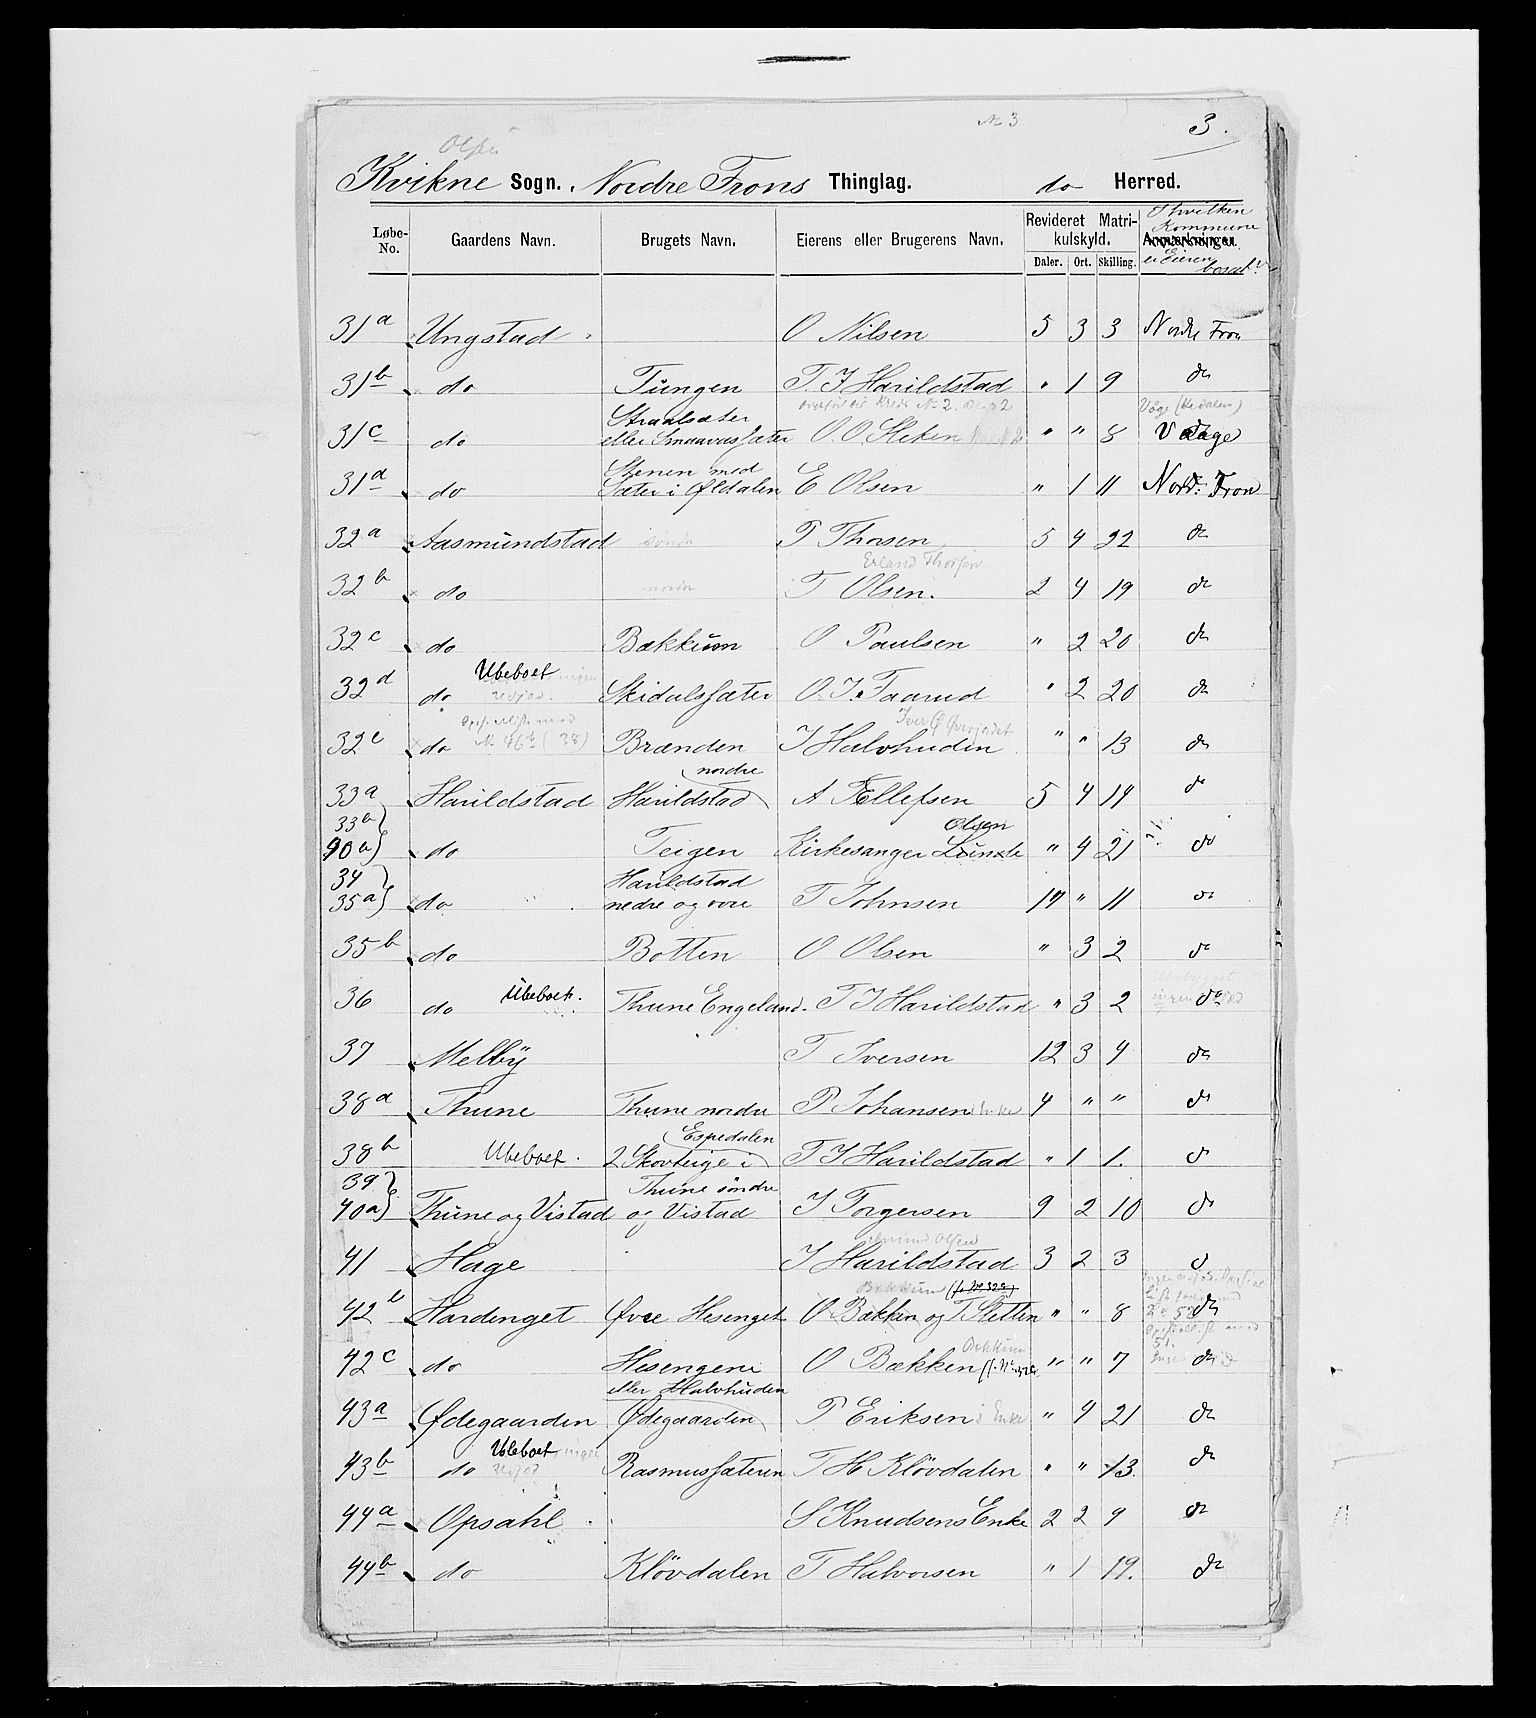 No 3
3.
Olsen
Kvikne Sogn. Nordre Frons Thinglag. do Herred.
Løbe-No. Gaardens Navn. Brugets Navn. Eierens eller Brugerens Navn. Revideret Matrikulskyld. Daler. Ort. Skilling. Anmærkninger. I hvilken Kommune er Eieren bosat?
31a Ungstad O Nilsen 5 3 3 Nordre Fron
31b do Tüngen T. J Harildstad " 1 9 do
Våge (Hedalen)
31c do Straalsæter eller Smaavassæter O. O. Sleten " " 8 Vaage
31d do Stenen med Sæter i Øldalen E Olsen " 1 11 Nord: Fron
32a Aasmundstad søndre P Thorsen 5 4 22 do
Erland Thorsen
32b do nordre T Olsen. 2 4 19 do
32c do Bækkum O Paulsen " 2 20 do
32d do Ubeboet Skidalssæter O. J. Faarud " 2 20 do
Iver O Øverjordet
32e do No 46b (38) Brænden J Halvhuden " " 13 do
33a Harildstad Harildstad nordre A Ellefsen 5 4 14 do
33b 90a do Teigen Kirkesanger Lunde Olsen " 4 21 do
34 35a do Harildstad nedre og øvre T Johnsen 17 " 11 do
35b do Botten O Olsen " 3 2 do
36 do Ubeboet. Thune Engeland. T J Harildstad " 3 2 do
37 Melby T Iversen 12 3 4 do
38a Thune Thune nordre P Johansen Enke 4 " " do
38b Ubeboet. 2 Skovteige i Espedalen T J Harildstad " 1 1. do
39 40a Thune og Vistad Thune søndre og Vistad J Torgersen 9 2 10 do
41 Hage J Harildstad 3 2 3 do
Bækkum
42b Hardenget Øvre Hesenget O Bækken og T Sletten " " 8 do
Bækkum
42c do Hesengene O Bækken " " 7 do
43a Ødegaarden Ødegaarden eller Halvhuden P Eriksens Enke " 4 21 do
43b do Ubeboet Rasmussæteren T H Kløvdalen " " 13. do
44a Opsahl S Knudsens Enke 2 2 9 do
44b do Kløvdalen T Halvorsen " 1 19. do